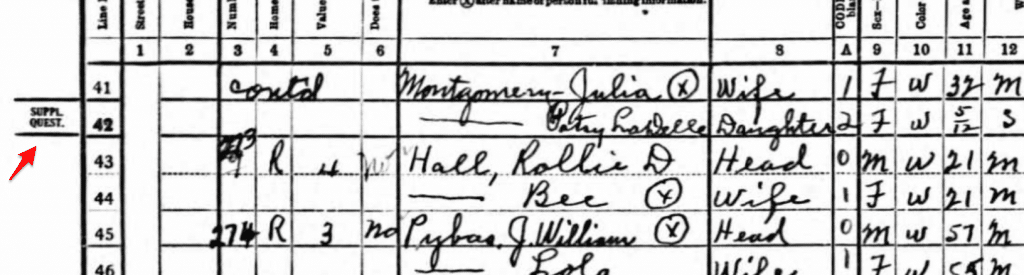 Line Street House Numb Home Value Does CODE Sex— Color Age a
1 2 3 4 5 6 7 8 A 9 10 11 12
41 contd Montgomery - Julia Ⓧ Wife 1 F W 32 m
SUPPL. QUEST.
42 —— Patsy LaDelle Daughter 2 F W 5/12 S
43 273 R 4 no Hall, Rollie D Head 0 m W 21 m
44 —— Bee Ⓧ Wife 1 F W 21 m
45 274 R 3 no Pybas, J. William Ⓧ Head 0 m W 57 m
46 —— Lola Wife 1 F W m